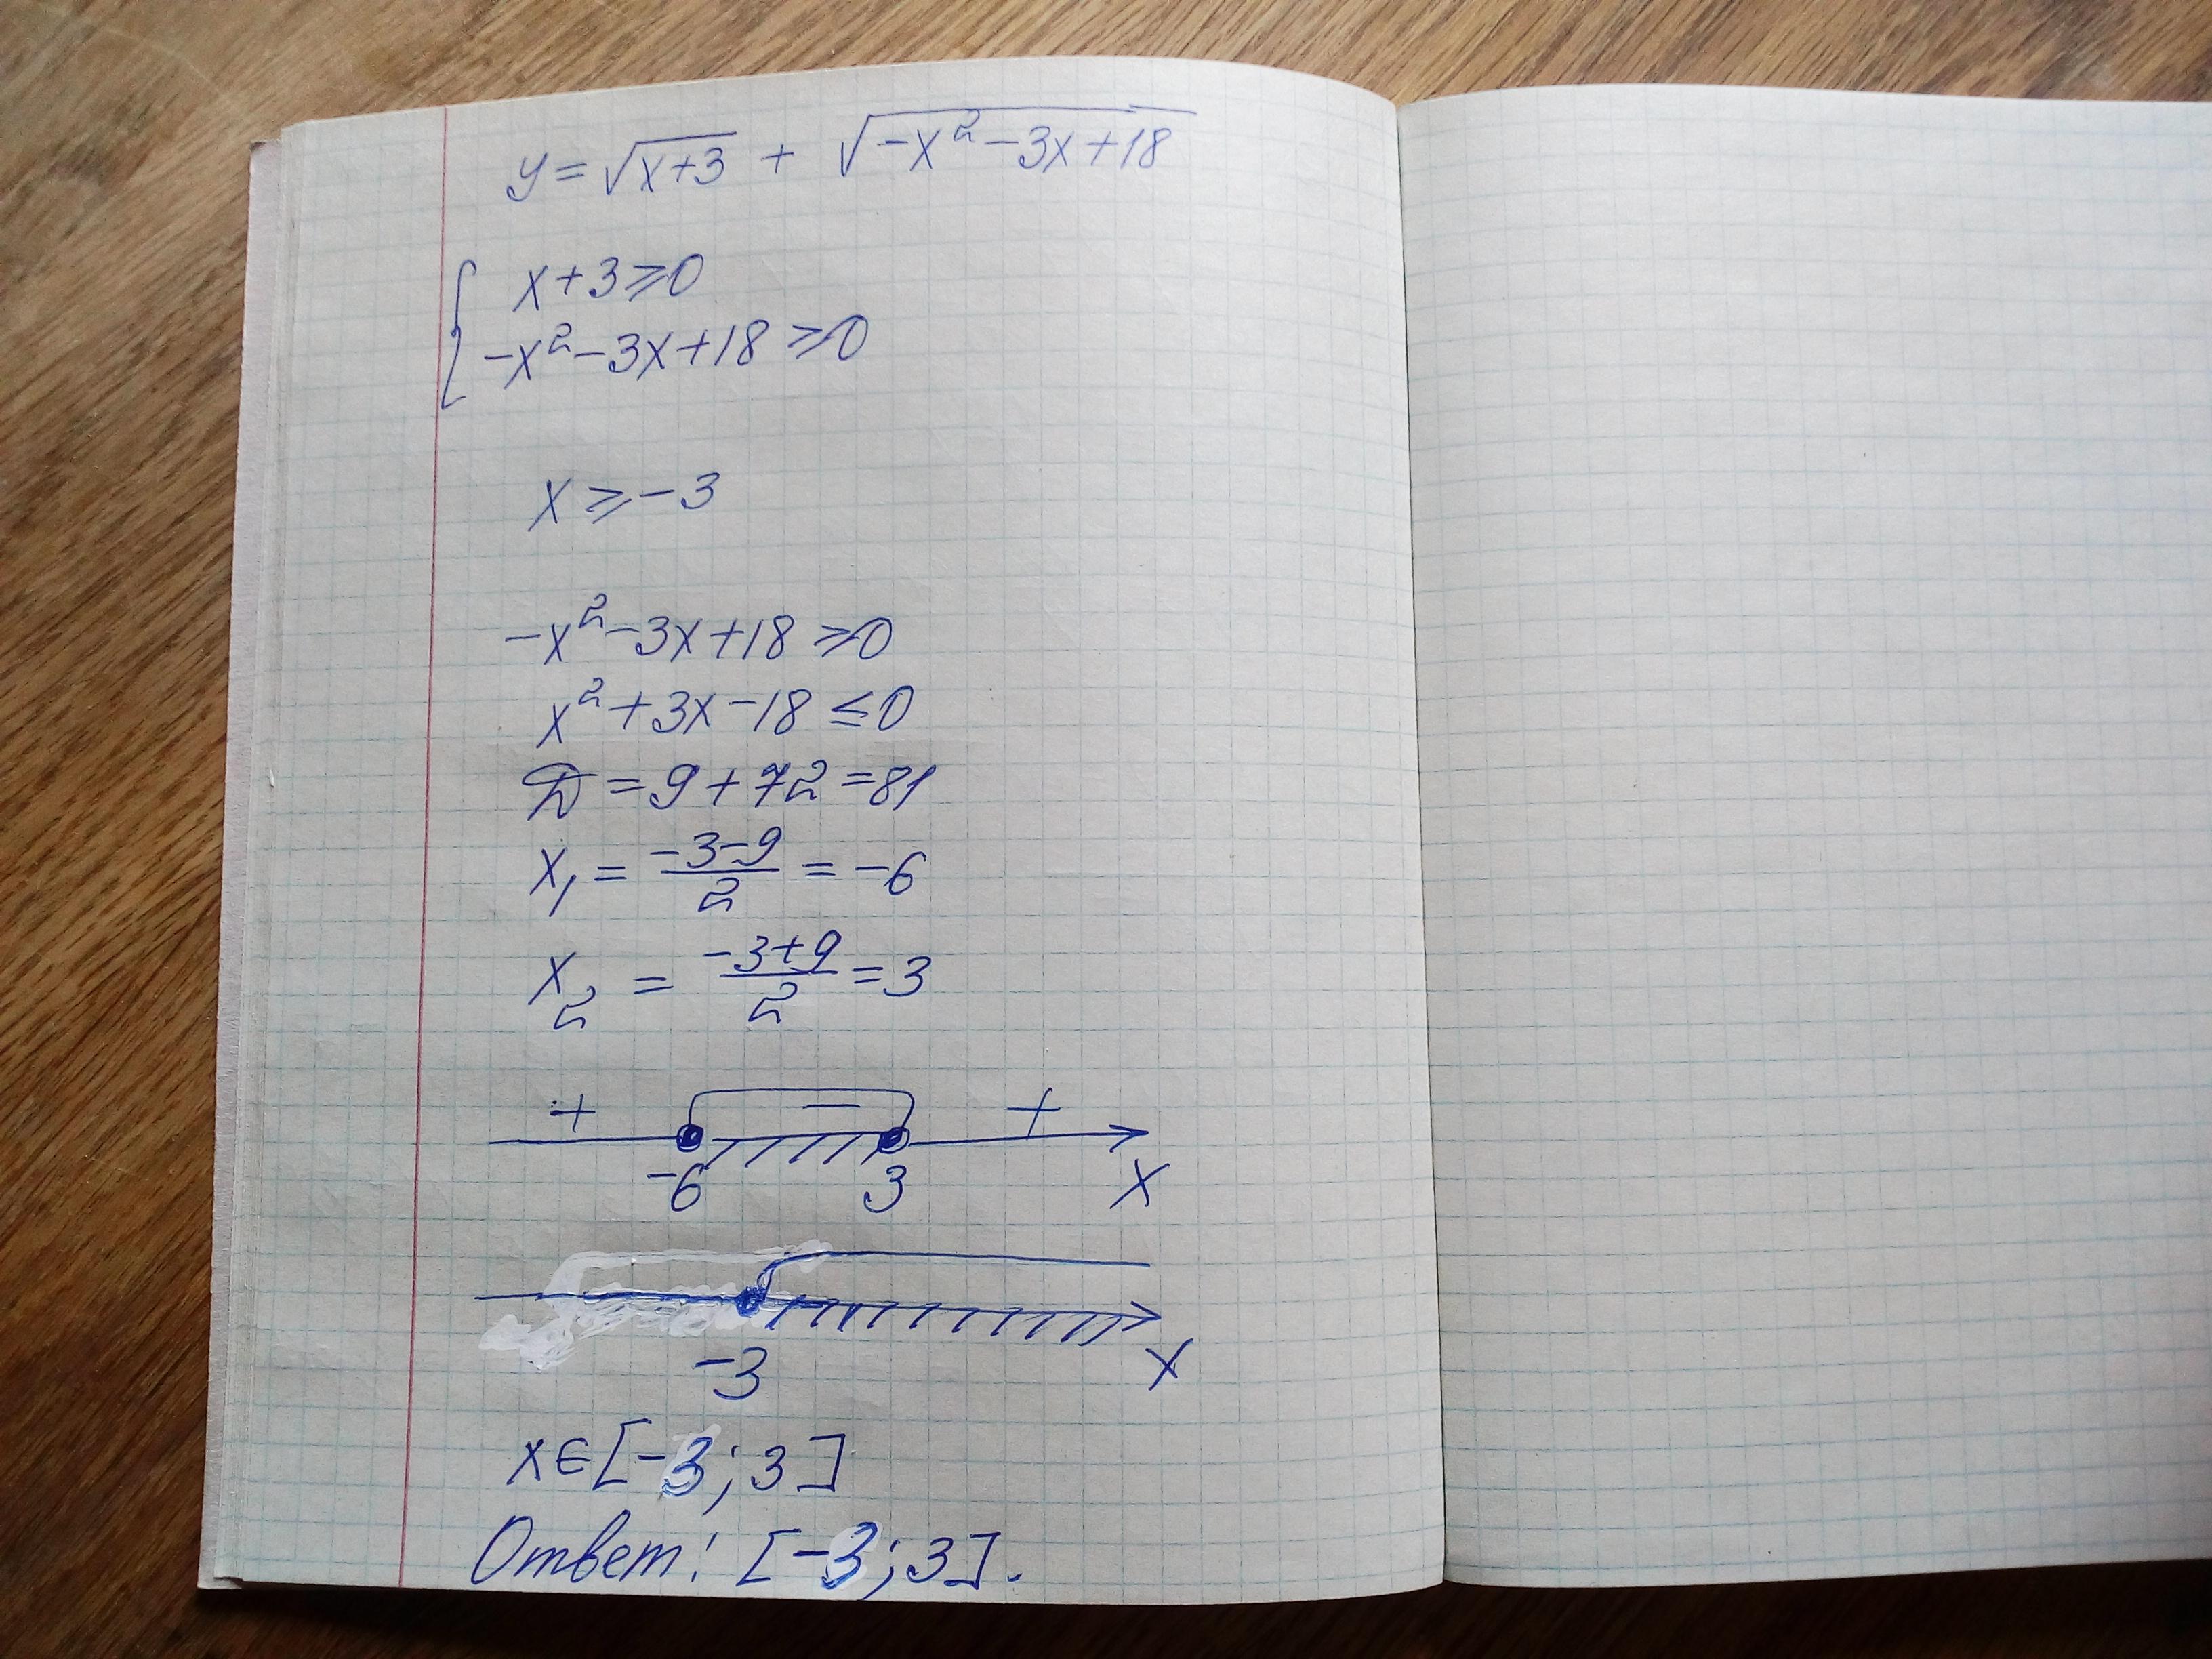 y = √(x+3) + √(-x²-3x+18)
{ x+3 ≥ 0
-x²-3x+18 ≥ 0
x ≥ -3
-x²-3x+18 ≥ 0
x²+3x-18 ≤ 0
D = 9+72 = 81
x₁ = (-3-9)/2 = -6
x₂ = (-3+9)/2 = 3
+ − +
-6 3 x
-3 x
x∈[-3; 3]
Ответ: [-3; 3].